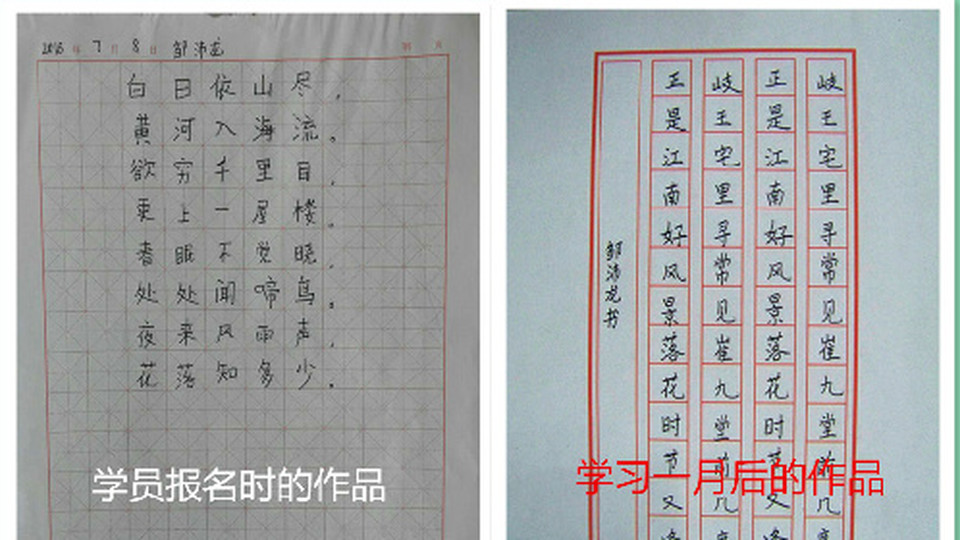 2016年 7月 8日 邹沛龙
白日依山尽,
黄河入海流。
欲穷千里目,
更上一层楼。
春眠不觉晓,
处处闻啼鸟。
夜来风雨声,
花落知多少。
学员报名时的作品
岐王宅里寻常见崔九堂前几度
正是江南好风景落花时节又逢
岐王宅里寻常见崔九堂前几度
正是江南好风景落花时节又逢
邹沛龙书
学习一月后的作品